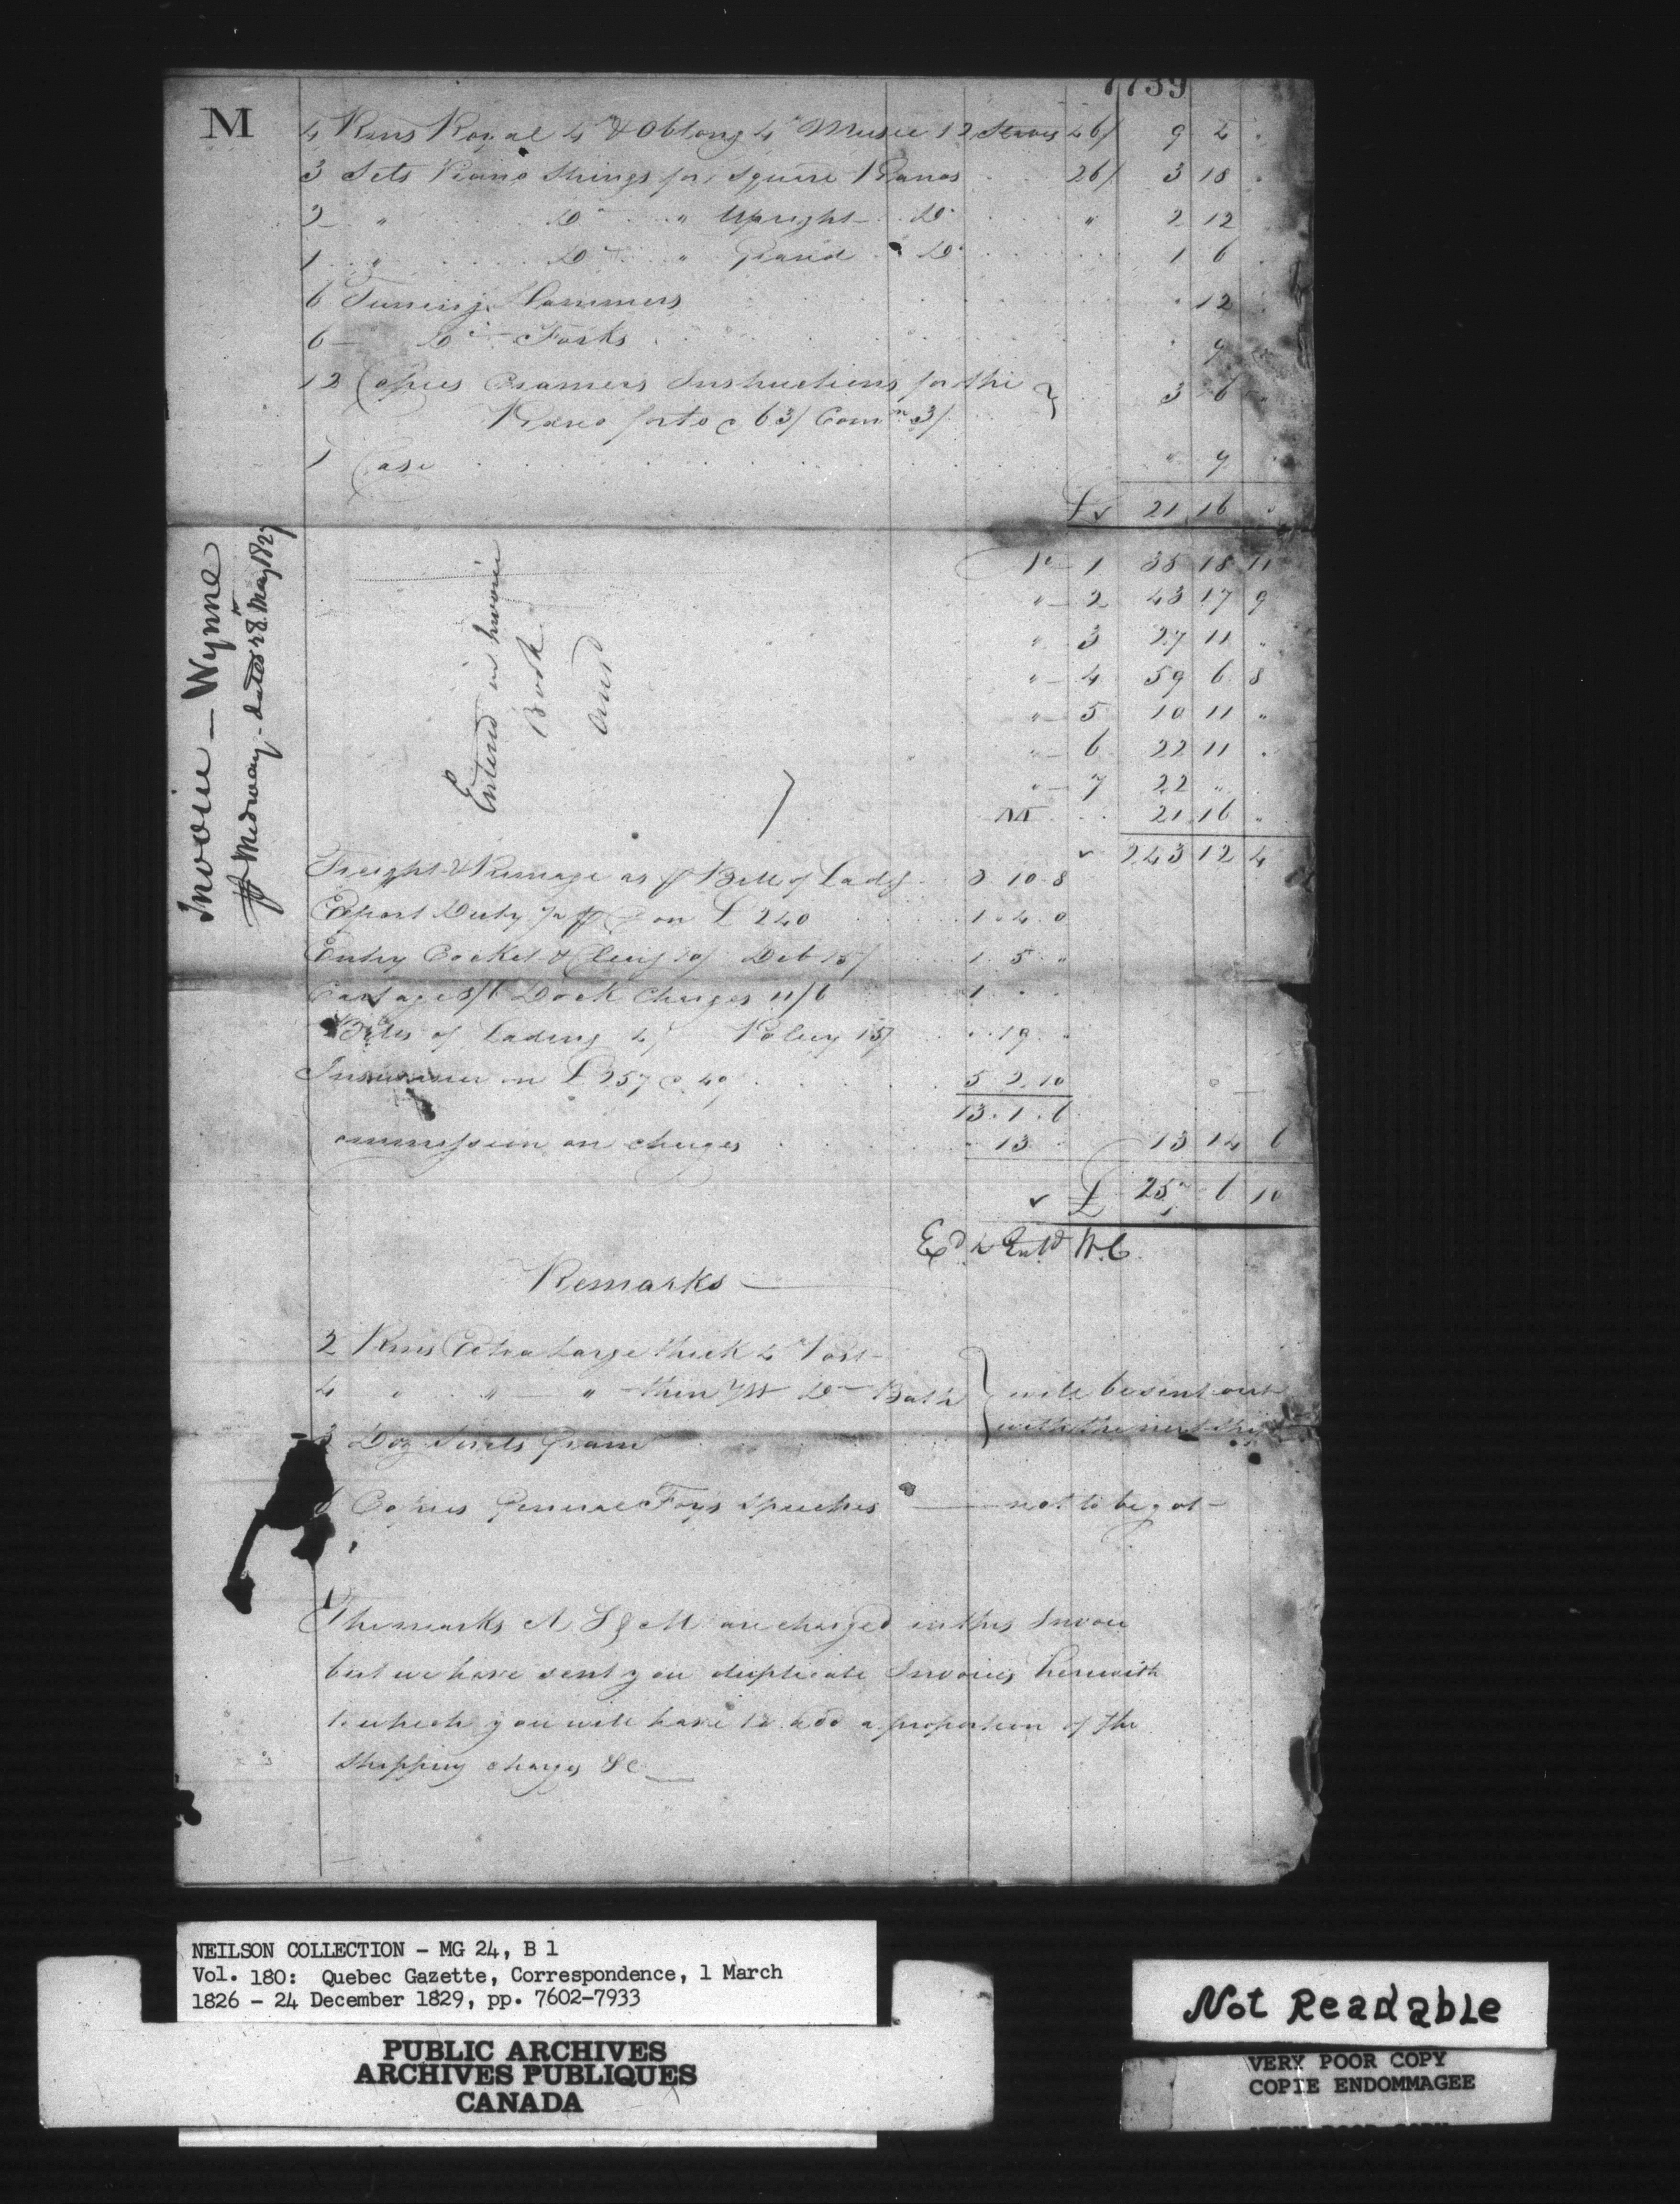 7739
M
4 Rms Royal 4to & Oblong 4to Music 12 Staves 46/ 9 4 "
3 Sets Piano Strings for Square Pianos 26/ 3 18 "
2 " Do " Upright Do " 2 12
1 " Do " Grand Do 1 6
6 Tuning Hammers " 12
6 Do Forks " 9
12 Copies Cramers Instructions for the
Piano forte @ 63/ Comn 3/ } 3 6 "
1 Case " 9
£ 21 16 "
Invoice — Wynne
pr Medway - dated 28th May 1827
Entered in Invoice
Book
No 1 38 18 11
" 2 43 17 9
" 3 27 11 "
" 4 59 6 8
" 5 10 11 "
" 6 22 11 "
" 7 22 "
M 21 16 "
243 12 4
Freight & Primage as pr Bill of Ladg 3 10 8
Export Duty on £240 1 4 0
Entry Cocket & 10/ Deb 15/ 1 5 "
Cartage 8/6 Dock Charges 11/6 1 " "
Bills of Lading 4/ Policy 15/ " 19 "
Insurance on £257 @ 40/ 5 2 10
13 1 6
Commission on charges 13 13 14 6
£ 257 6 10
Exd & Entd W.C.
Remarks —
2 Rms Extra Large thick 4to Post
4 " " — " thin Do Bath } will be sent out
with the next ship
3 Doz
6 Copies General Foy's Speeches — not to be got —
The marks A S & M are charged in this Invoice
but we have sent you duplicate Invoices herewith
to which you will have to add a proportion of the
shipping charges &c —
NEILSON COLLECTION - MG 24, B 1
Vol. 180: Quebec Gazette, Correspondence, 1 March
1826 - 24 December 1829, pp. 7602-7933
PUBLIC ARCHIVES
ARCHIVES PUBLIQUES
CANADA
Not Readable
VERY POOR COPY
COPIE ENDOMMAGEE